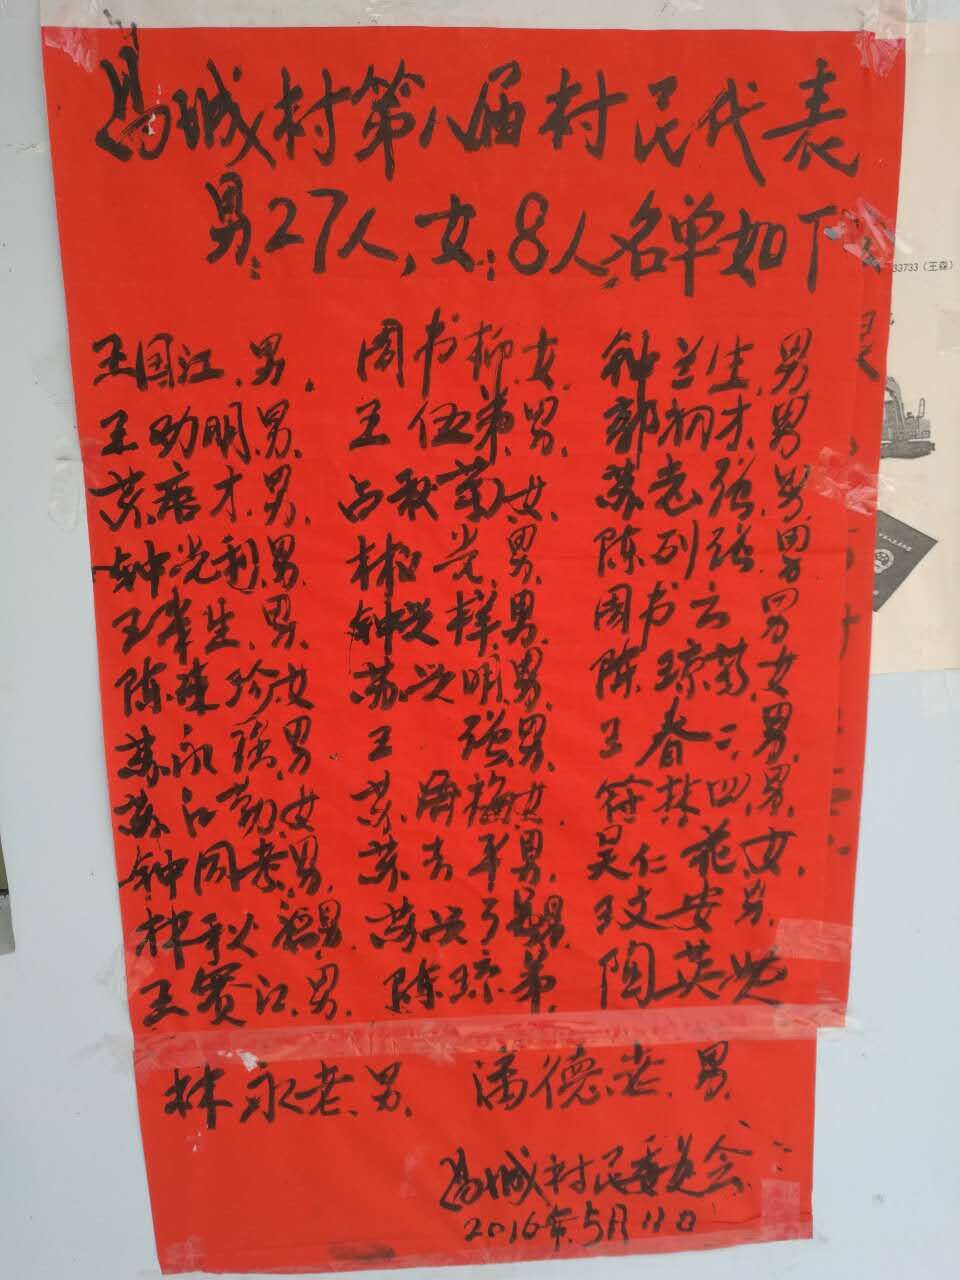 昌城村第八届村民代表
男:27人,女:8人,名单如下
王国江.男. 周书柳.女. 钟兰生.男
王劲明.男. 王伍弟.男. 郭朝才.男
苏唐才.男. 占秋菊.女. 苏老强.男
钟光利.男. 林光.男. 陈列强.男
王孝生.男. 钟兴择.男. 周书云 男
陈 珍女 苏兴明.男. 陈琼菊.女
苏永强.男 王强.男. 王春二.男.
苏江勤.女 苏 梅.女. 符林四.男.
钟同泰.男. 苏吉平.男. 吴仁花.女.
林秋福.男. 苏兴 男. 王文安.男.
王贤江.男. 陈琼弟. 陶英兴
林永老.男. 潘德老.男.
昌城村民委员会
2016年5月11日
33733（王森）